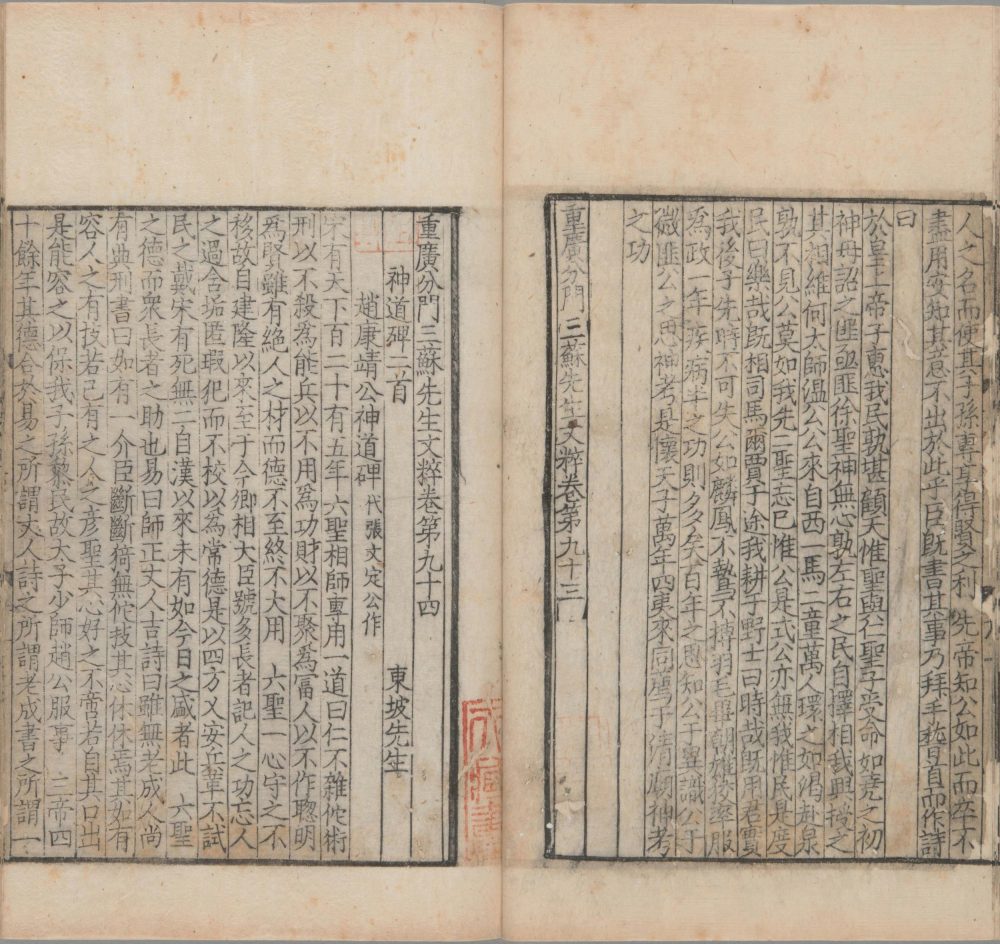 人之名而使其子孫專享得賢之利 先帝知公如此而卒不
盡用安知其意不出於此乎臣既書其事乃拜手稽首而作詩
曰
於皇上帝子惠我民孰堪顧天惟聖與仁聖子受命如堯之初
神母詔之匪亟匪徐聖神無心孰左右之民自擇相我興授之
其相維何太師溫公公來自西一馬二童萬人環之如渴赴泉
孰不見公莫如我先二聖忘己惟公是式公亦無我惟民是度
民曰樂哉既相司馬爾賈于途我耕于野士曰時哉既用君實
我後子先時不可失公如麟鳳不鷙不搏羽毛畢朝雄狡率服
為政一年疾病半之功則多矣百年之思知公于異識公于
微匪公之思神考是懷天子萬年四夷來同薦于清廟神考
之功
重廣分門三蘇先生文粹卷第九十三
重廣分門三蘇先生文粹卷第九十四
神道碑二首
東坡先生
趙康靖公神道碑 代張文定公作
宋有天下百二十有五年 六聖相師專用一道曰仁不雜佗術
刑以不殺為能兵以不用為功財以不聚為富人以不作聰明
為賢雖有絕人之材而德不至終不大用 六聖一心守之不
移故自建隆以來至于今卿相大臣號多長者記人之功忘人
之過含垢匿瑕犯而不校以為常德是以四方乂安兵革不試
民之戴宋有死無二自漢以來未有如今日之盛者此 六聖
之德而眾長者之助也易曰師正丈人吉詩曰雖無老成人尚
有典刑書曰如有一介臣斷斷猗無佗技其心休休焉其如有
容人之有技若己有之人之彥聖其心好之不啻若自其口出
是能容之以保我子孫黎民故太子少師趙公服事 三帝四
十餘年其德合於易之所謂丈人詩之所謂老成書之所謂一